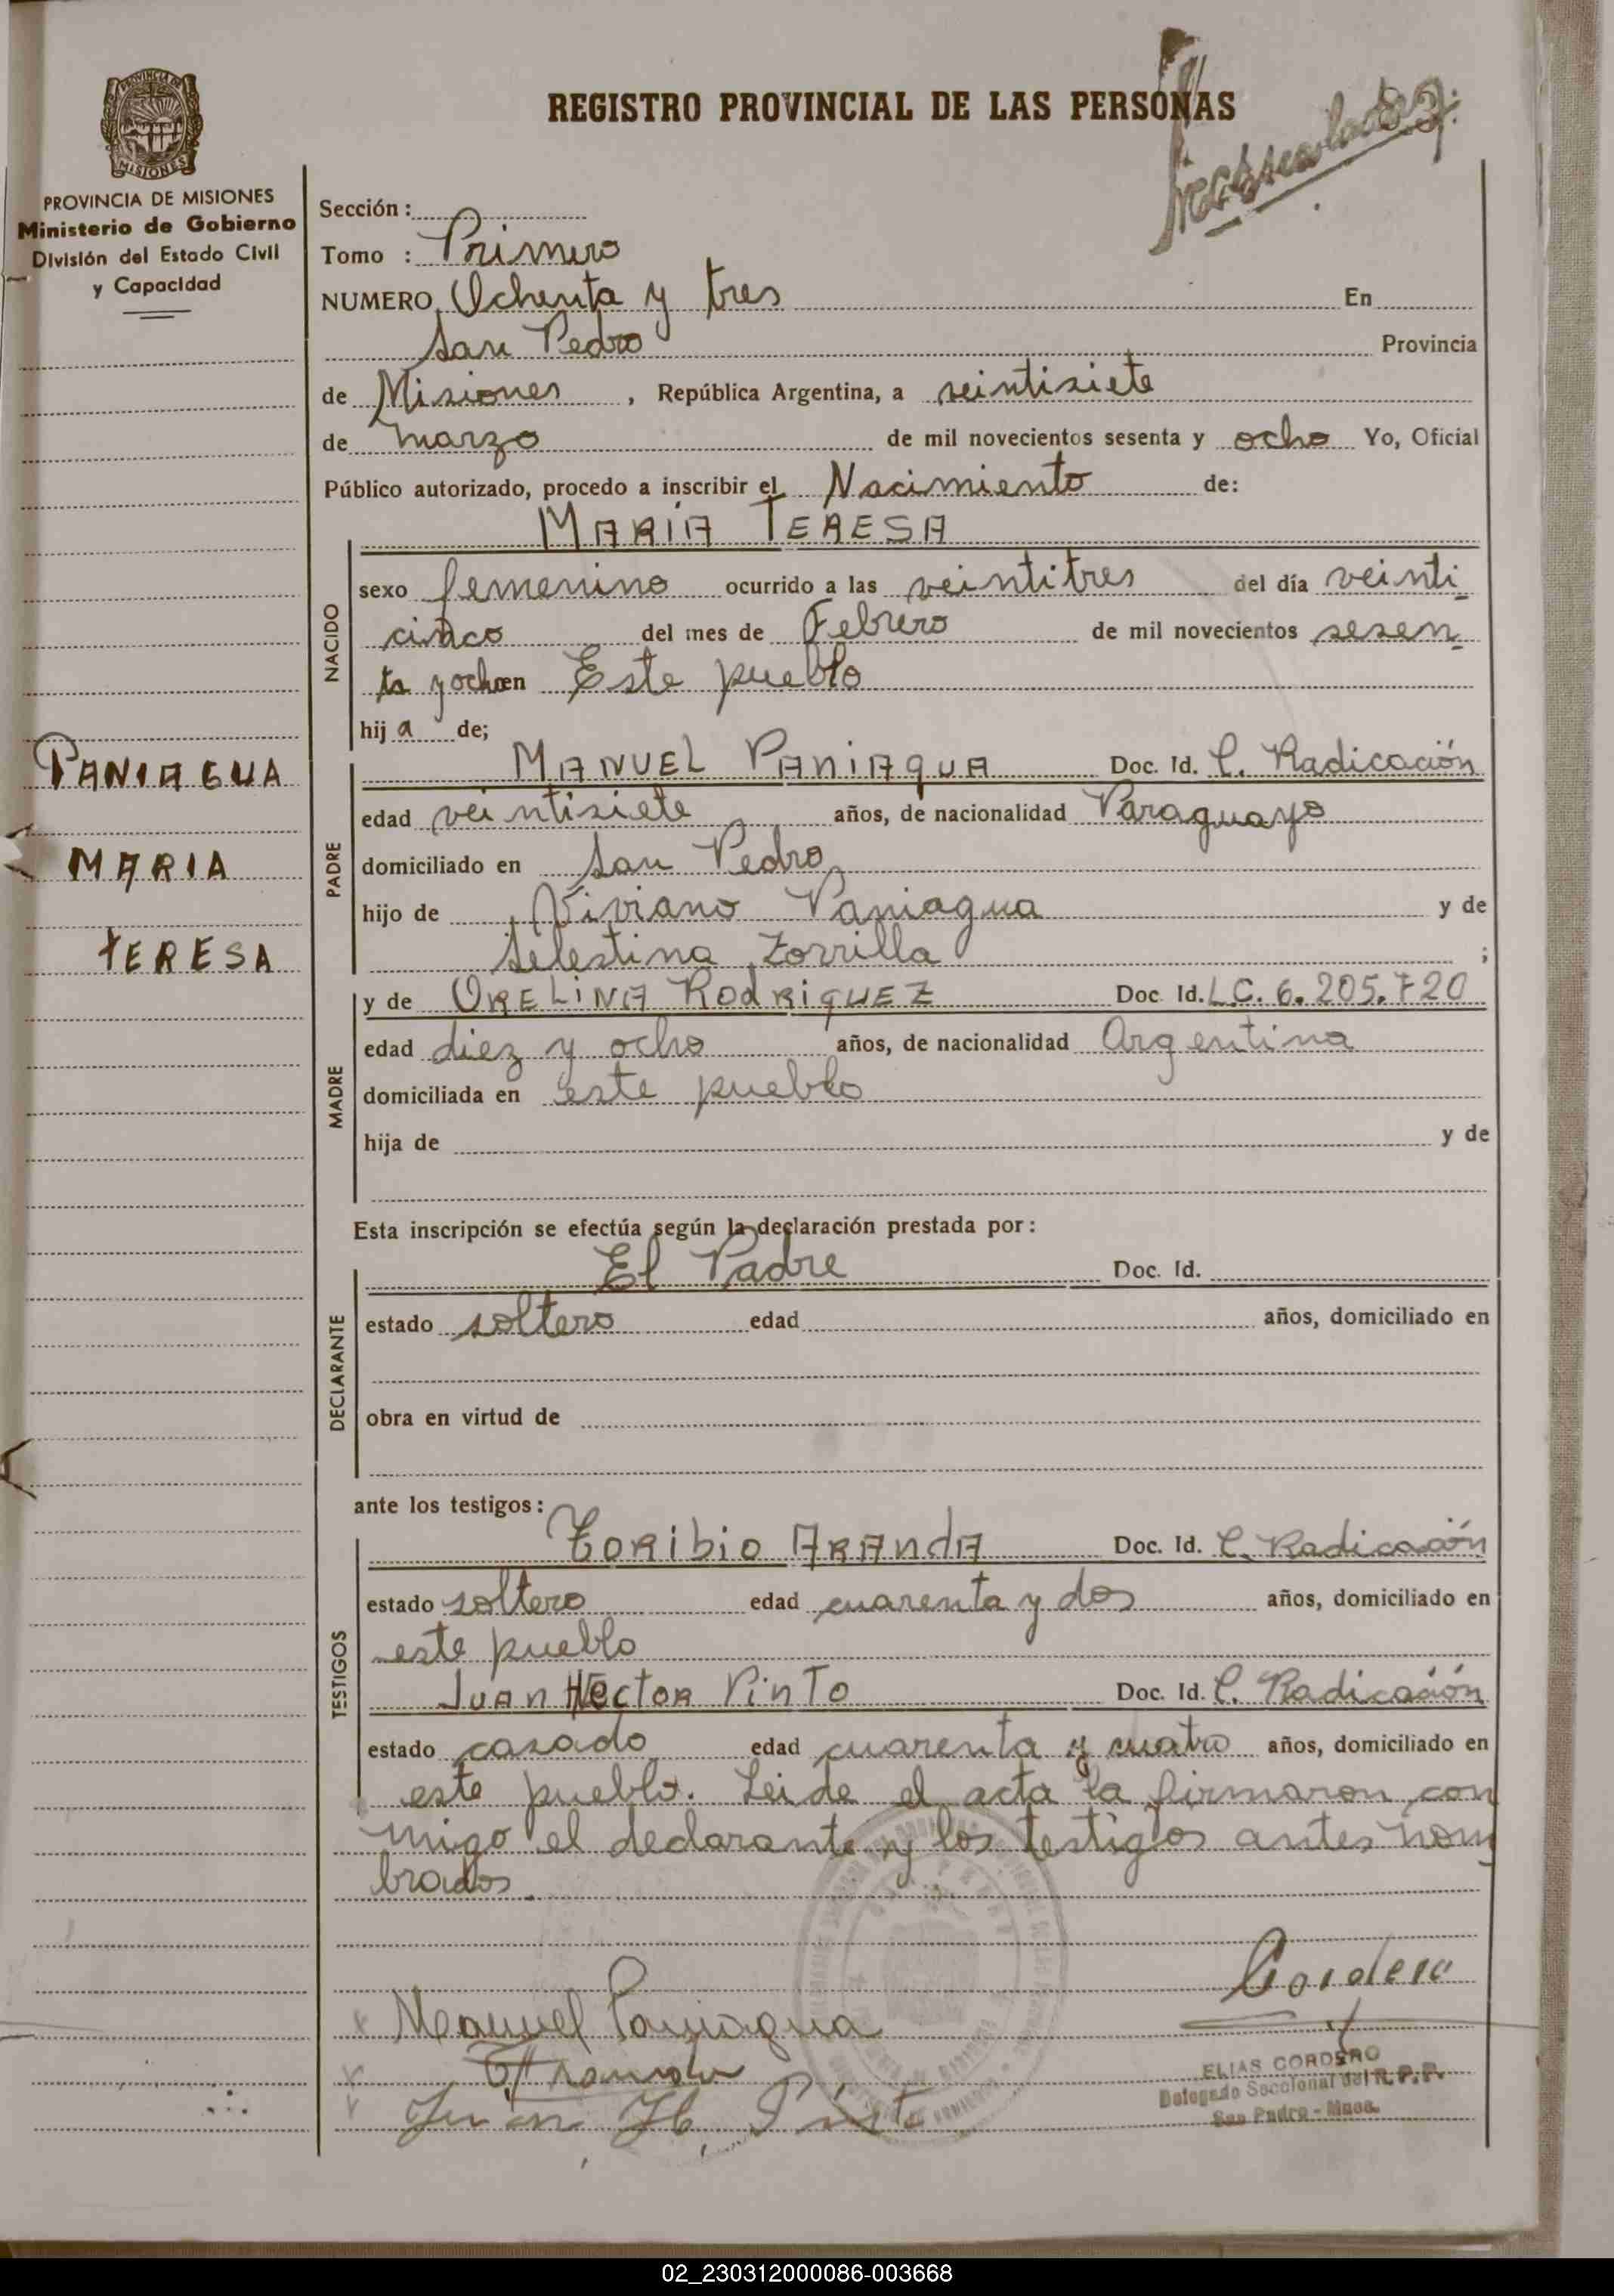 REGISTRO PROVINCIAL DE LAS PERSONAS
83
PROVINCIA DE
MISIONES
PROVINCIA DE MISIONES
Ministerio de Gobierno
División del Estado Civil
y Capacidad
PANIAGUA
MARIA
TERESA
Sección :
Tomo : Primero
NUMERO Ochenta y tres En
San Pedro Provincia
de Misiones , República Argentina, a veintisiete
de marzo de mil novecientos sesenta y ocho Yo, Oficial
Público autorizado, procedo a inscribir el Nacimiento de:
MARÍA TERESA
NACIDO
sexo femenino ocurrido a las veintitres del día veinti
cinco del mes de Febrero de mil novecientos sesen
ta y ocho en Este pueblo
hij a de;
PADRE
MANUEL PANIAGUA Doc. Id. C. Radicación
edad veintisiete años, de nacionalidad Paraguayo
domiciliado en San Pedro
hijo de Viviano Paniagua y de
Selestina Zorrilla ;
MADRE
y de ORELINA RODRIGUEZ Doc Id. L.C. 6.205.720
edad diez y ocho años, de nacionalidad Argentina
domiciliada en este pueblo
hija de y de
Esta inscripción se efectúa según la declaración prestada por :
DECLARANTE
El Padre Doc. Id.
estado soltero edad años, domiciliado en
obra en virtud de
ante los testigos :
TESTIGOS
TORIBIO ARANDA Doc. Id. C. Radicación
estado soltero edad cuarenta y dos años, domiciliado en
este pueblo
JUAN HECTOR PINTO Doc. Id. C. Radicación
estado casado edad cuarenta y cuatro años, domiciliado en
este pueblo. Leide el acta la firmaron con
migo el declarante y los testigos antes nom
brados.
Cordero
Manuel Paniagua
T Aranda
Juan H. Pinto
ELIAS CORDERO
Delegado Seccional del R.P.P.
San Pedro - Mnes.
02_230312000086-003668